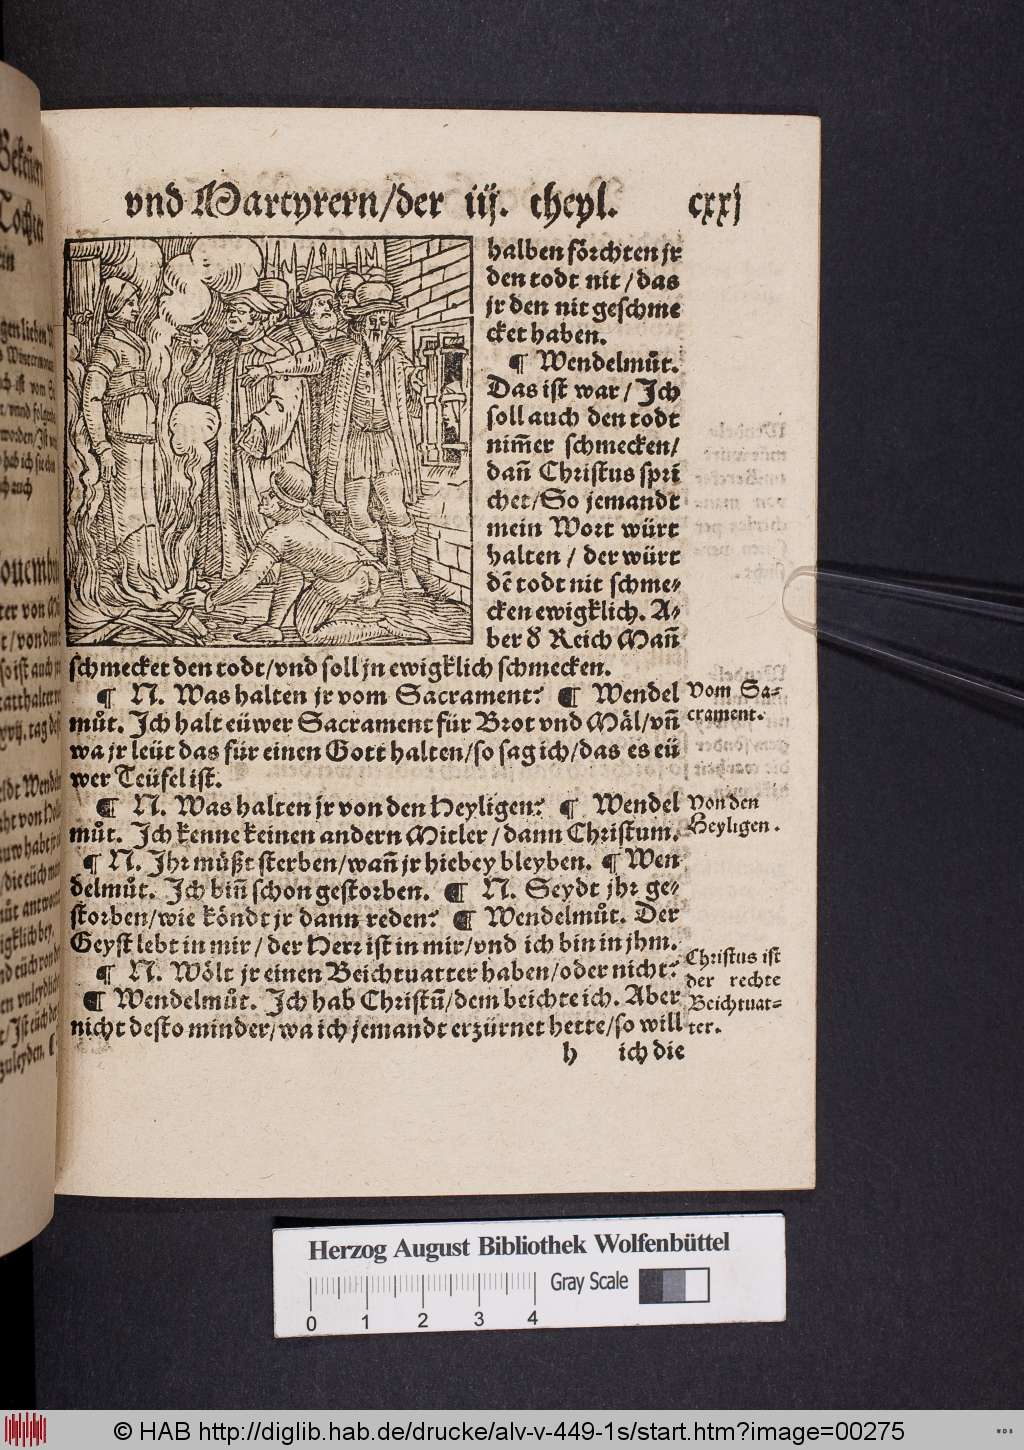 vnd Martyrern/der iij. theyl. cxxj
halben förchten jr
den todt nit/das
jr den nit geschme
cket haben.
¶ Wendelmůt.
Das ist war/Ich
soll auch den todt
nim̃er schmecken/
dañ Christus spri
chet/So jemandt
mein Wort würt
halten/der würt
dē todt nit schme-
cken ewigklich. A-
ber d̕ Reich Mañ
schmecket den todt/vnd soll jn ewigklich schmecken.
¶ N. Was halten jr vom Sacrament? ¶ Wendel
můt. Ich halt eüwer Sacrament für Brot vnd Mäl/vñ
wa jr leüt das für einen Gott halten/so sag ich/das es eü
wer Teüfel ist.
Vom Sa-
crament.
¶ N. Was halten jr von den Heyligen? ¶ Wendel
můt. Ich kenne keinen andern Mitler/dann Christum.
Von den
Heyligen.
¶ N. Ihr můßt sterben/wañ jr hiebey bleyben. ¶ Wen
delmůt. Ich biñ schon gestorben. ¶ N. Seydt jhr ge-
storben/wie köndt jr dann reden? ¶ Wendelmůt. Der
Geyst lebt in mir/der Herr ist in mir/vnd ich bin in jhm.
¶ N. Wölt jr einen Beichtuatter haben/oder nicht?
¶ Wendelmůt. Ich hab Christū/dem beichte ich. Aber
nicht desto minder/wa ich jemandt erzürnet hette/so will
Christus ist
der rechte
Beichtuat-
ter.
h ich die
Herzog August Bibliothek Wolfenbüttel
0 1 2 3 4 Gray Scale
© HAB http://diglib.hab.de/drucke/alv-v-449-1s/start.htm?image=00275